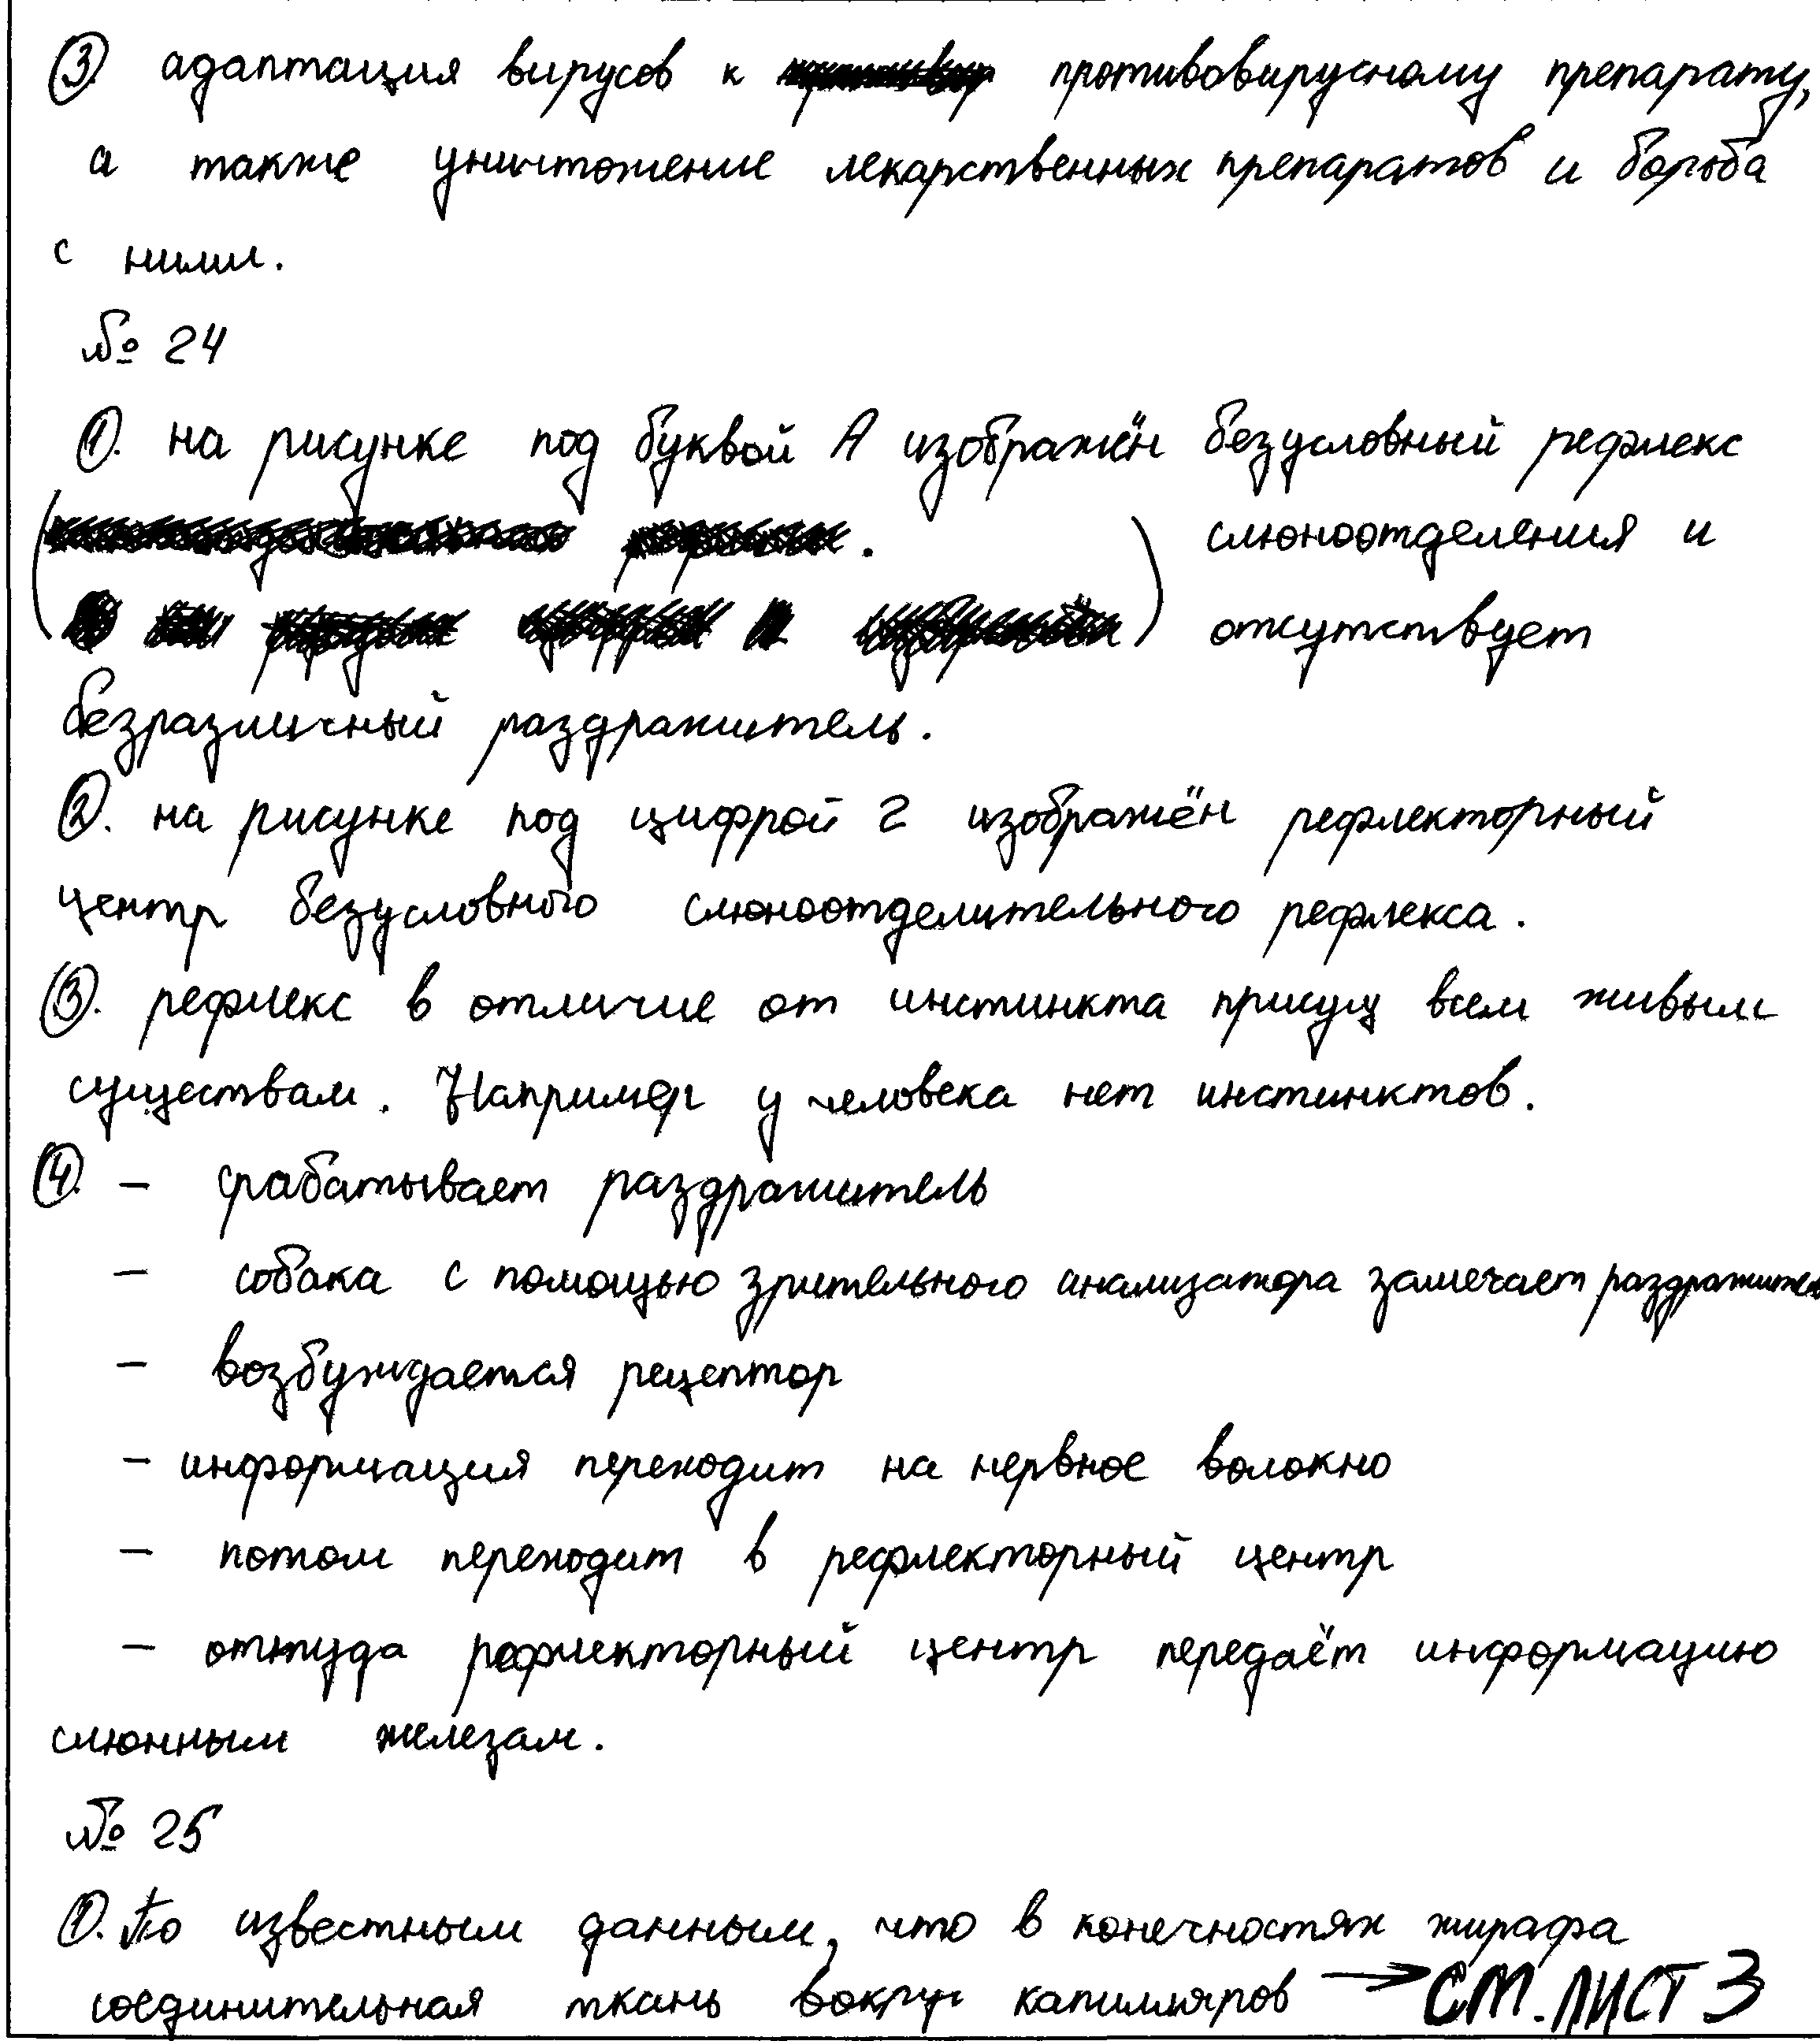 3. адаптация вирусов к противовирусному препарату,
а также уничтожение лекарственных препаратов и борьба
с ними.
№ 24
1. на рисунке под буквой А изображён безусловный рефлекс
слюноотделения и
отсутствует
безразличный раздражитель.
2. на рисунке под цифрой 2 изображён рефлекторный
центр безусловного слюноотделительного рефлекса.
3. рефлекс в отличие от инстинкта присущ всем живым
существам. Например у человека нет инстинктов.
4. – срабатывает раздражитель
– собака с помощью зрительного анализатора замечает раздражитель
– возбуждается рецептор
– информация переходит на нервное волокно
– потом переходит в рефлекторный центр
– откуда рефлекторный центр передаёт информацию
слюнным железам.
№ 25
1. По известным данным, что в конечностях жирафа
соединительная ткань вокруг капилляров → СМ. ЛИСТ 3